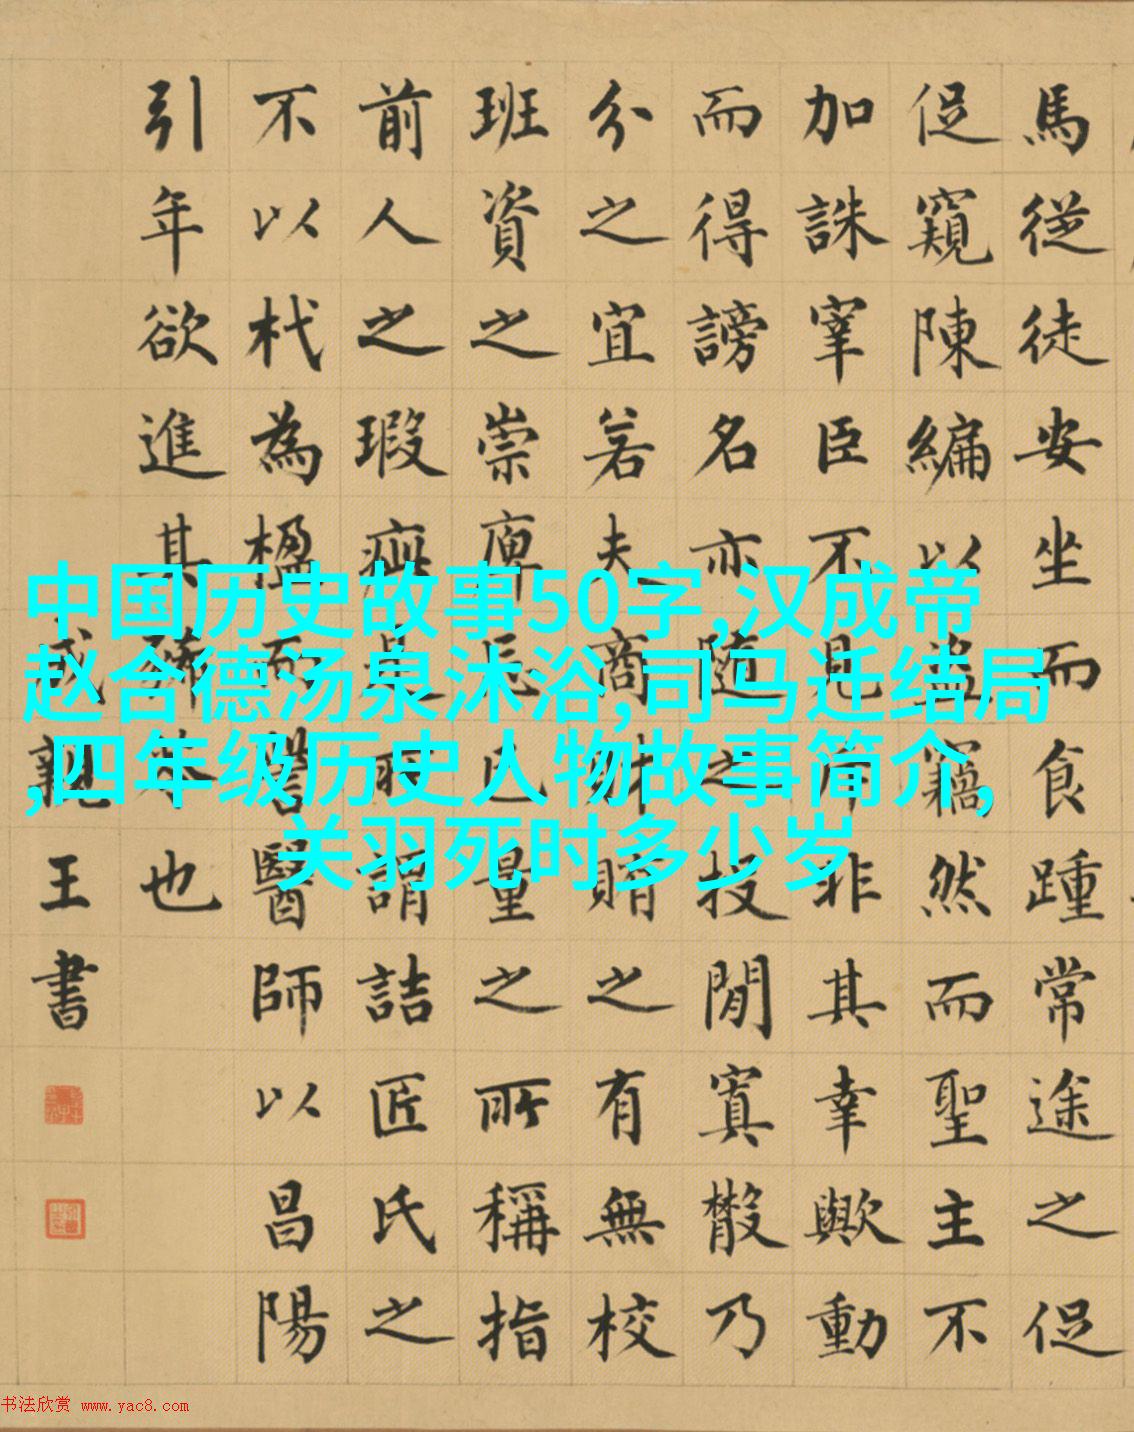 中国历史故事50字,汉成帝
赵合德汤泉沐浴,司马迁结局
,四年级历史人物故事简介,
关羽死时多少岁
馬從徒安坐而食踵常途之促
促窺陳編以盜竊然而聖主不
加誅宰臣不見斥非其幸歟動
而得謗名亦隨之投閒寘散乃
分之宜若夫商財賄之有無校
班資之崇庳忘己量之所稱指
前人之瑕疵是所謂詰匠氏之
不以杙為楹而訾醫師以昌陽
引年欲進其豨苓也
成親王書
书法欣赏 www.yac8.com